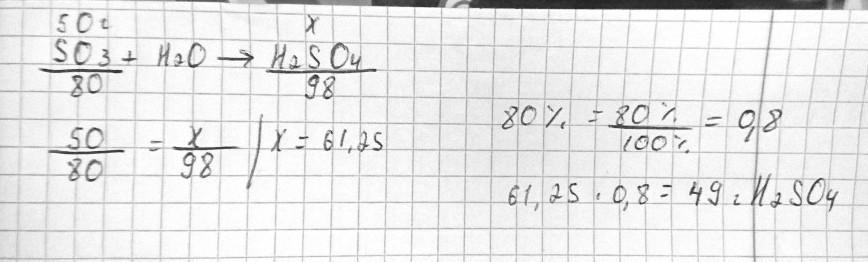 50г x
SO3 + H2O → H2SO4
80 98
50/80 = x/98 | x = 61,25
80% = 80%/100% = 0,8
61,25 · 0,8 = 49г H2SO4